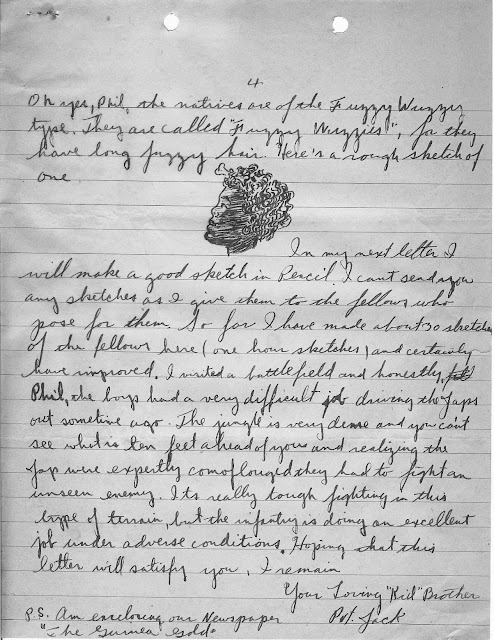 4
Oh yes, Phil, the natives are of the Fuzzy Wuzzy
type. They are called "Fuzzy Wuzzies", for they
have long fuzzy hair. Here's a rough sketch of
one
In my next letter I
will make a good sketch in Pencil. I cant send you
any sketches as I give them to the fellows who
pose for them. So far I have made about 30 sketches
of the fellows here (one hour sketches) and certainly
have improved. I visited a battlefield and honestly,
Phil, the boys had a very difficult job driving the Japs
out sometime ago. The jungle is very dense and you can't
see what is ten feet ahead of you and realizing the
Jap were expertly comoflouged they had to fight an
unseen enemy. Its really tough fighting in this
type of terrain, but the infantry is doing an excellent
job under adverse conditions. Hoping that this
letter will satisfy you, I remain
Your Loving "Kid" Brother
Pvt. Jack
P.S. Am enclosing our Newspaper
"The Guinea Gold"